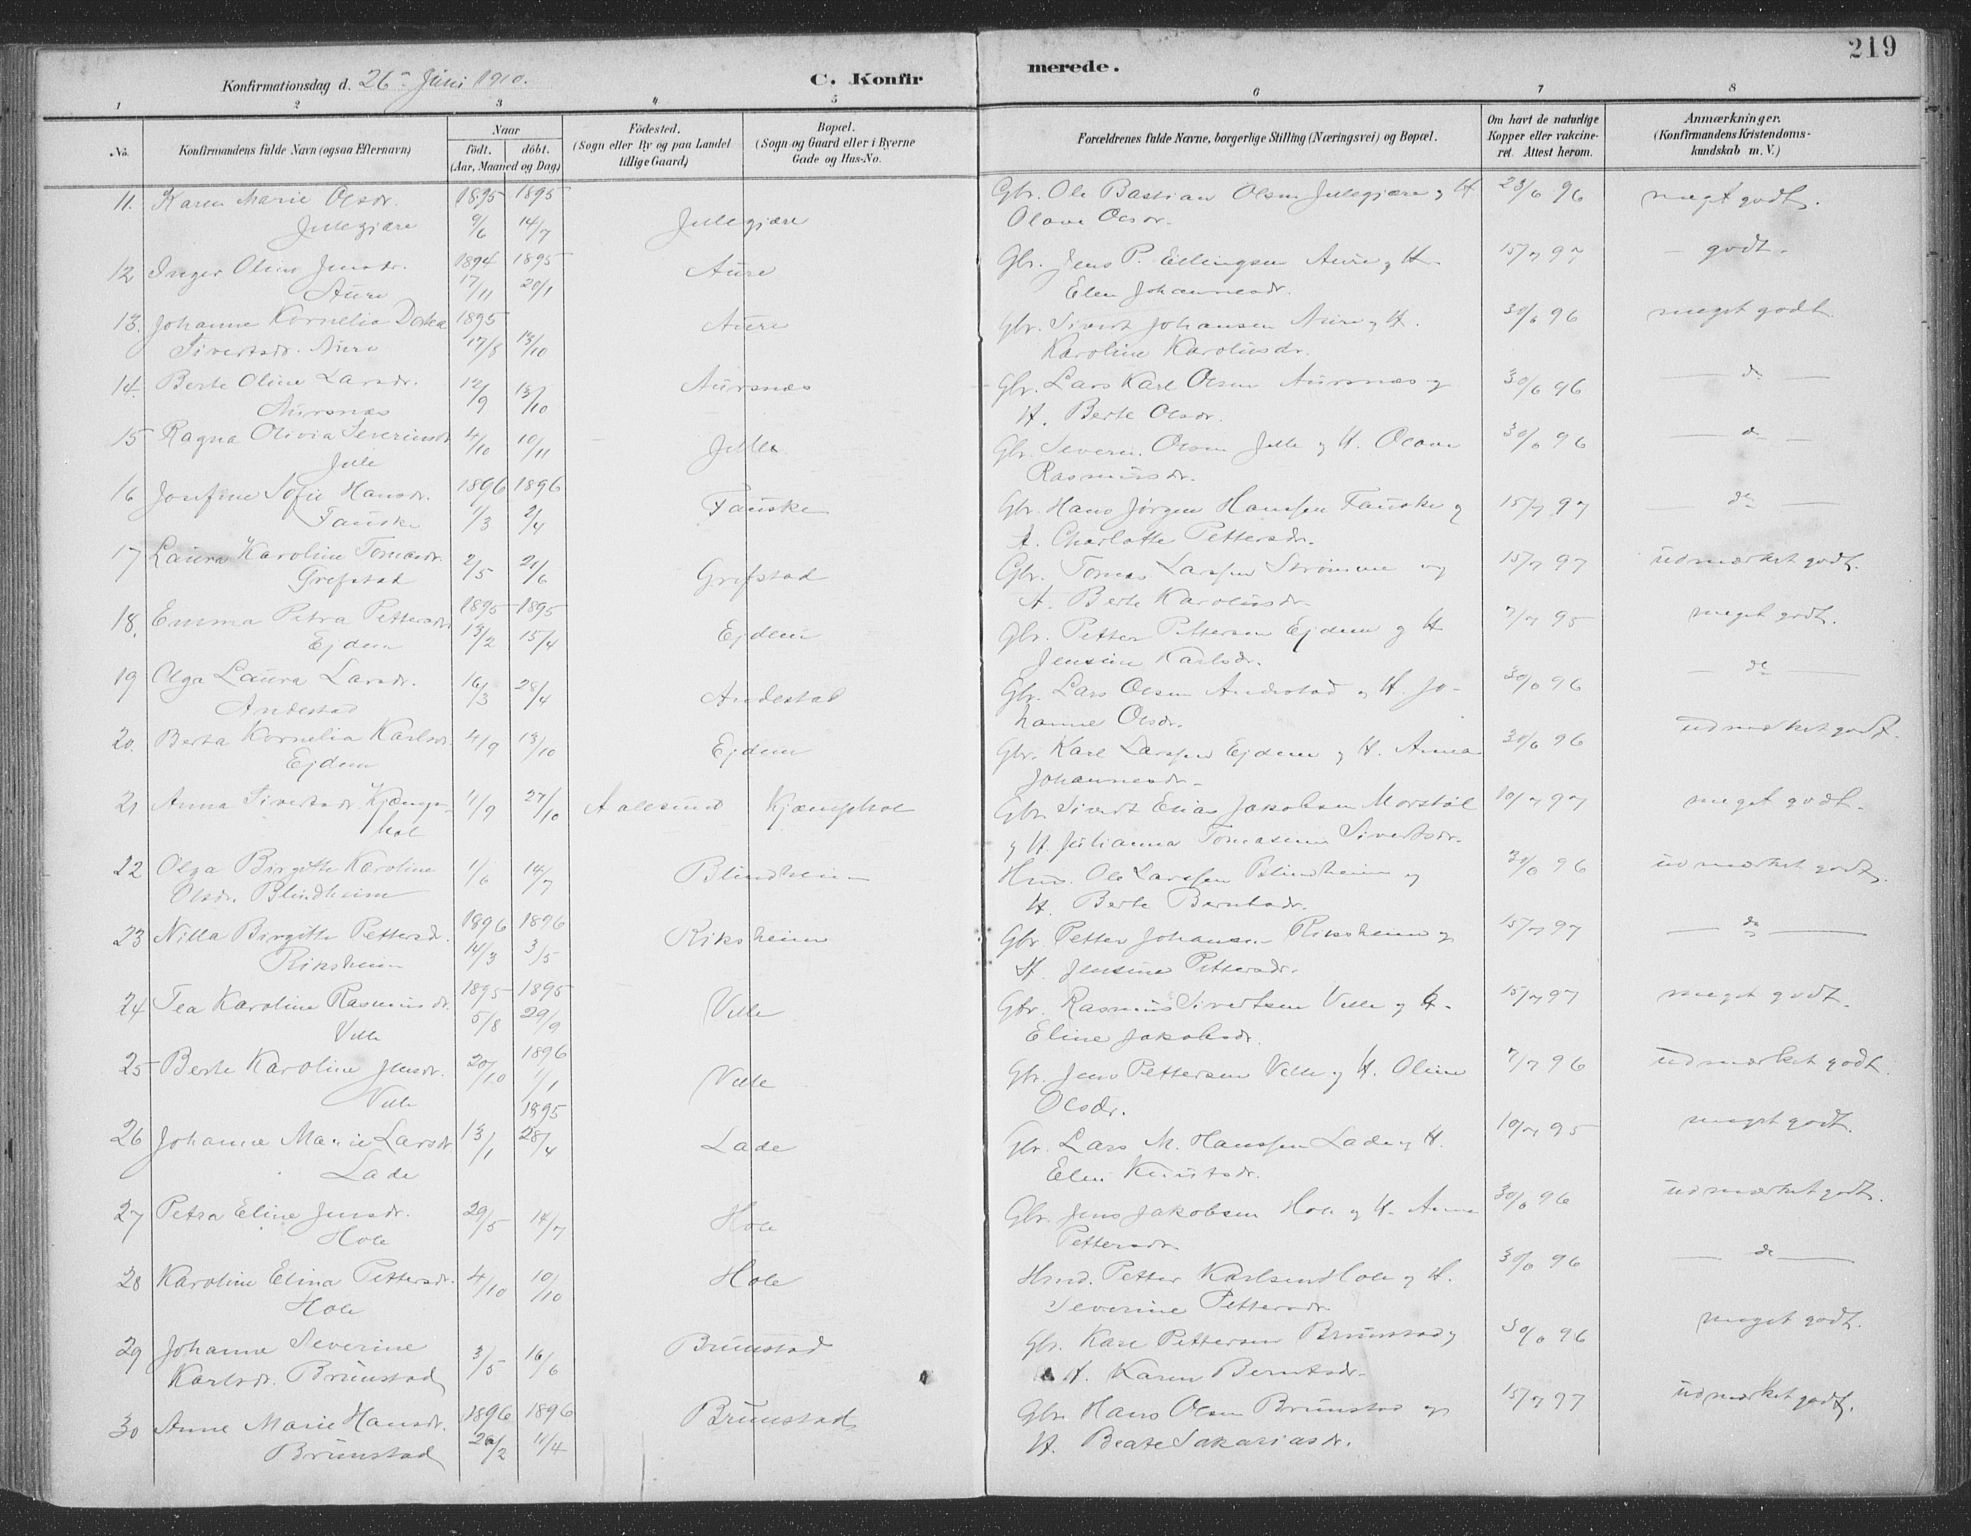 219
Konfirmationsdag d. 26de Juni 1910.
C. Konfirmerede.
1 2 3 4 5 6 7 8
No.
Konfirmandens fulde Navn (ogsaa Efternavn)
Naar
født. døbt.
(Aar, Maaned og Dag)
Fødested.
(Sogn eller By og paa Landet
tillige Gaard)
Bopæl.
(Sogn og Gaard eller i Byerne
Gade og Hus-No.
Forældrenes fulde Navne, borgerlige Stilling (Næringsvei) og Bopæl.
Om havt de naturlige
Kopper eller vakcine-
ret. Attest herom.
Anmærkninger.
(Konfirmandens Kristendoms-
kundskab m. V.)
11. Karen Marie Olsdr. 1895 1895 Gbr. Ole Bastian Olsen Jullegjære og H 23/6 96 meget godt.
Jullegjære 9/6 14/7 Jullegjære Olave Olsdr.
12 Inger Oline Jensdr. 1894 1895 Aure Gbr. Jens P. Ellingsen Aure og H. 15/7 97 godt.
Aure 17/11 20/1 Elen Johannesdr.
13. Johanne Kornelia Dortea 1895 Aure Gbr. Sivert Johansen Aure og H. 30/6 96 meget godt.
Sivertsdr. Aure 17/8 13/10 Karoline Karolusdr.
14. Berte Oline Larsdr. 12/9 13/10 Aursnæs Gbr. Lars Karl Olsen Aursnæs og 30/6 96 — do —
Aursnæs H. Berte Olsdr.
15 Ragna Olivia Severinsdr 4/10 10/11 Julle Gbr. Severin Olsen Julle og H. Olave 30/6 96 — do —
Julle Rasmusdr.
16 Josefine Sofie Hansdr. 1896 1896 Fauske Gbr. Hans Jørgen Hanssen Fauske og 15/7 97 — do —
Fauske 1/3 2/4 H. Charlotte Pettersdr.
17 Laura Karoline Tomasdr. 2/5 21/6 Grefstad Gbr. Tomas Larssen Strømme og 15/7 97 udmærket godt.
Grefstad H. Berte Karolusdr.
18. Emma Petra Pettersdr 1895 1895 Ejdem Gbr. Petter Pettersen Ejdem og H 7/7 95 meget godt.
Ejdem 13/2 15/4 Jensine Karlsdr.
19 Olga Laura Larsdr. 16/3 28/4 Andestad Gbr. Lars Olsen Andestad og H. Jo- 30/6 96 — do —
Andestad hanne Olsdr.
20. Berta Kornelia Karlsdr. 4/9 13/10 Ejdem Gbr. Karl Larssen Ejdem og H. Anna 30/6 96 udmærket godt.
Ejdem Johannesdr.
21 Anna Sivertsdr. Kjæmp- 11/9 27/10 Aalesund Kjæmphol Gbr. Sivert Elias Jakobsen Morstøl 10/7 97 meget godt.
hol og H. Julianna Tomasine Sivertsdr.
22 Olga Birgitte Karoline 1/6 14/7 Blindheim Hmd. Ole Larssen Blindheim og 30/6 96 udmærket godt.
Olsdr. Blindheim H. Berte Berntsdr.
23 Nilla Birgitte Pettersdr. 1896 1896 Riksheim Gbr. Petter Johansen Riksheim og 15/7 97 — do —
Riksheim 14/3 3/5 H. Jensine Pettersdr.
24 Tea Karoline Rasmusdr. 1895 1895 Velle Gbr. Rasmus Sivertsen Velle og H. 15/7 97 meget godt.
Velle 5/8 29/9 Eline Jakobsdr.
25 Berte Karoline Jensdr. 20/10 1896 1/1 Velle Gbr. Jens Pettersen Velle og H. Oline 7/7 96 udmærket godt.
Velle Olsdr.
26 Johanne Marie Larsdr 13/1 1895 28/4 Lade Gbr. Lars M. Hanssen Lade og H. 10/7 95 meget godt.
Lade Elen Knutsdr.
27 Petra Eline Jensdr. 29/5 14/7 Hole Gbr. Jens Jakobsen Hole og H. Anna 30/6 96 udmærket godt.
Hole Pettersdr.
28 Karoline Elina Pettersdr. 4/10 10/10 Hole Hmd. Petter Karlsen Hole og H. 30/6 96 — do —
Hole Severine Pettersdr.
29 Johanne Severine 3/5 16/6 Brunstad Gbr. Karl Pettersen Brunstad og 30/6 96 meget godt.
Karlsdr. Brunstad H. Karen Berntsdr.
30 Anne Marie Hansdr. 1896 1896 Brunstad Gbr. Hans Olsen Brunstad og 15/7 97 udmærket godt.
Brunstad 26/2 11/4 H. Beate Sakariasdr.